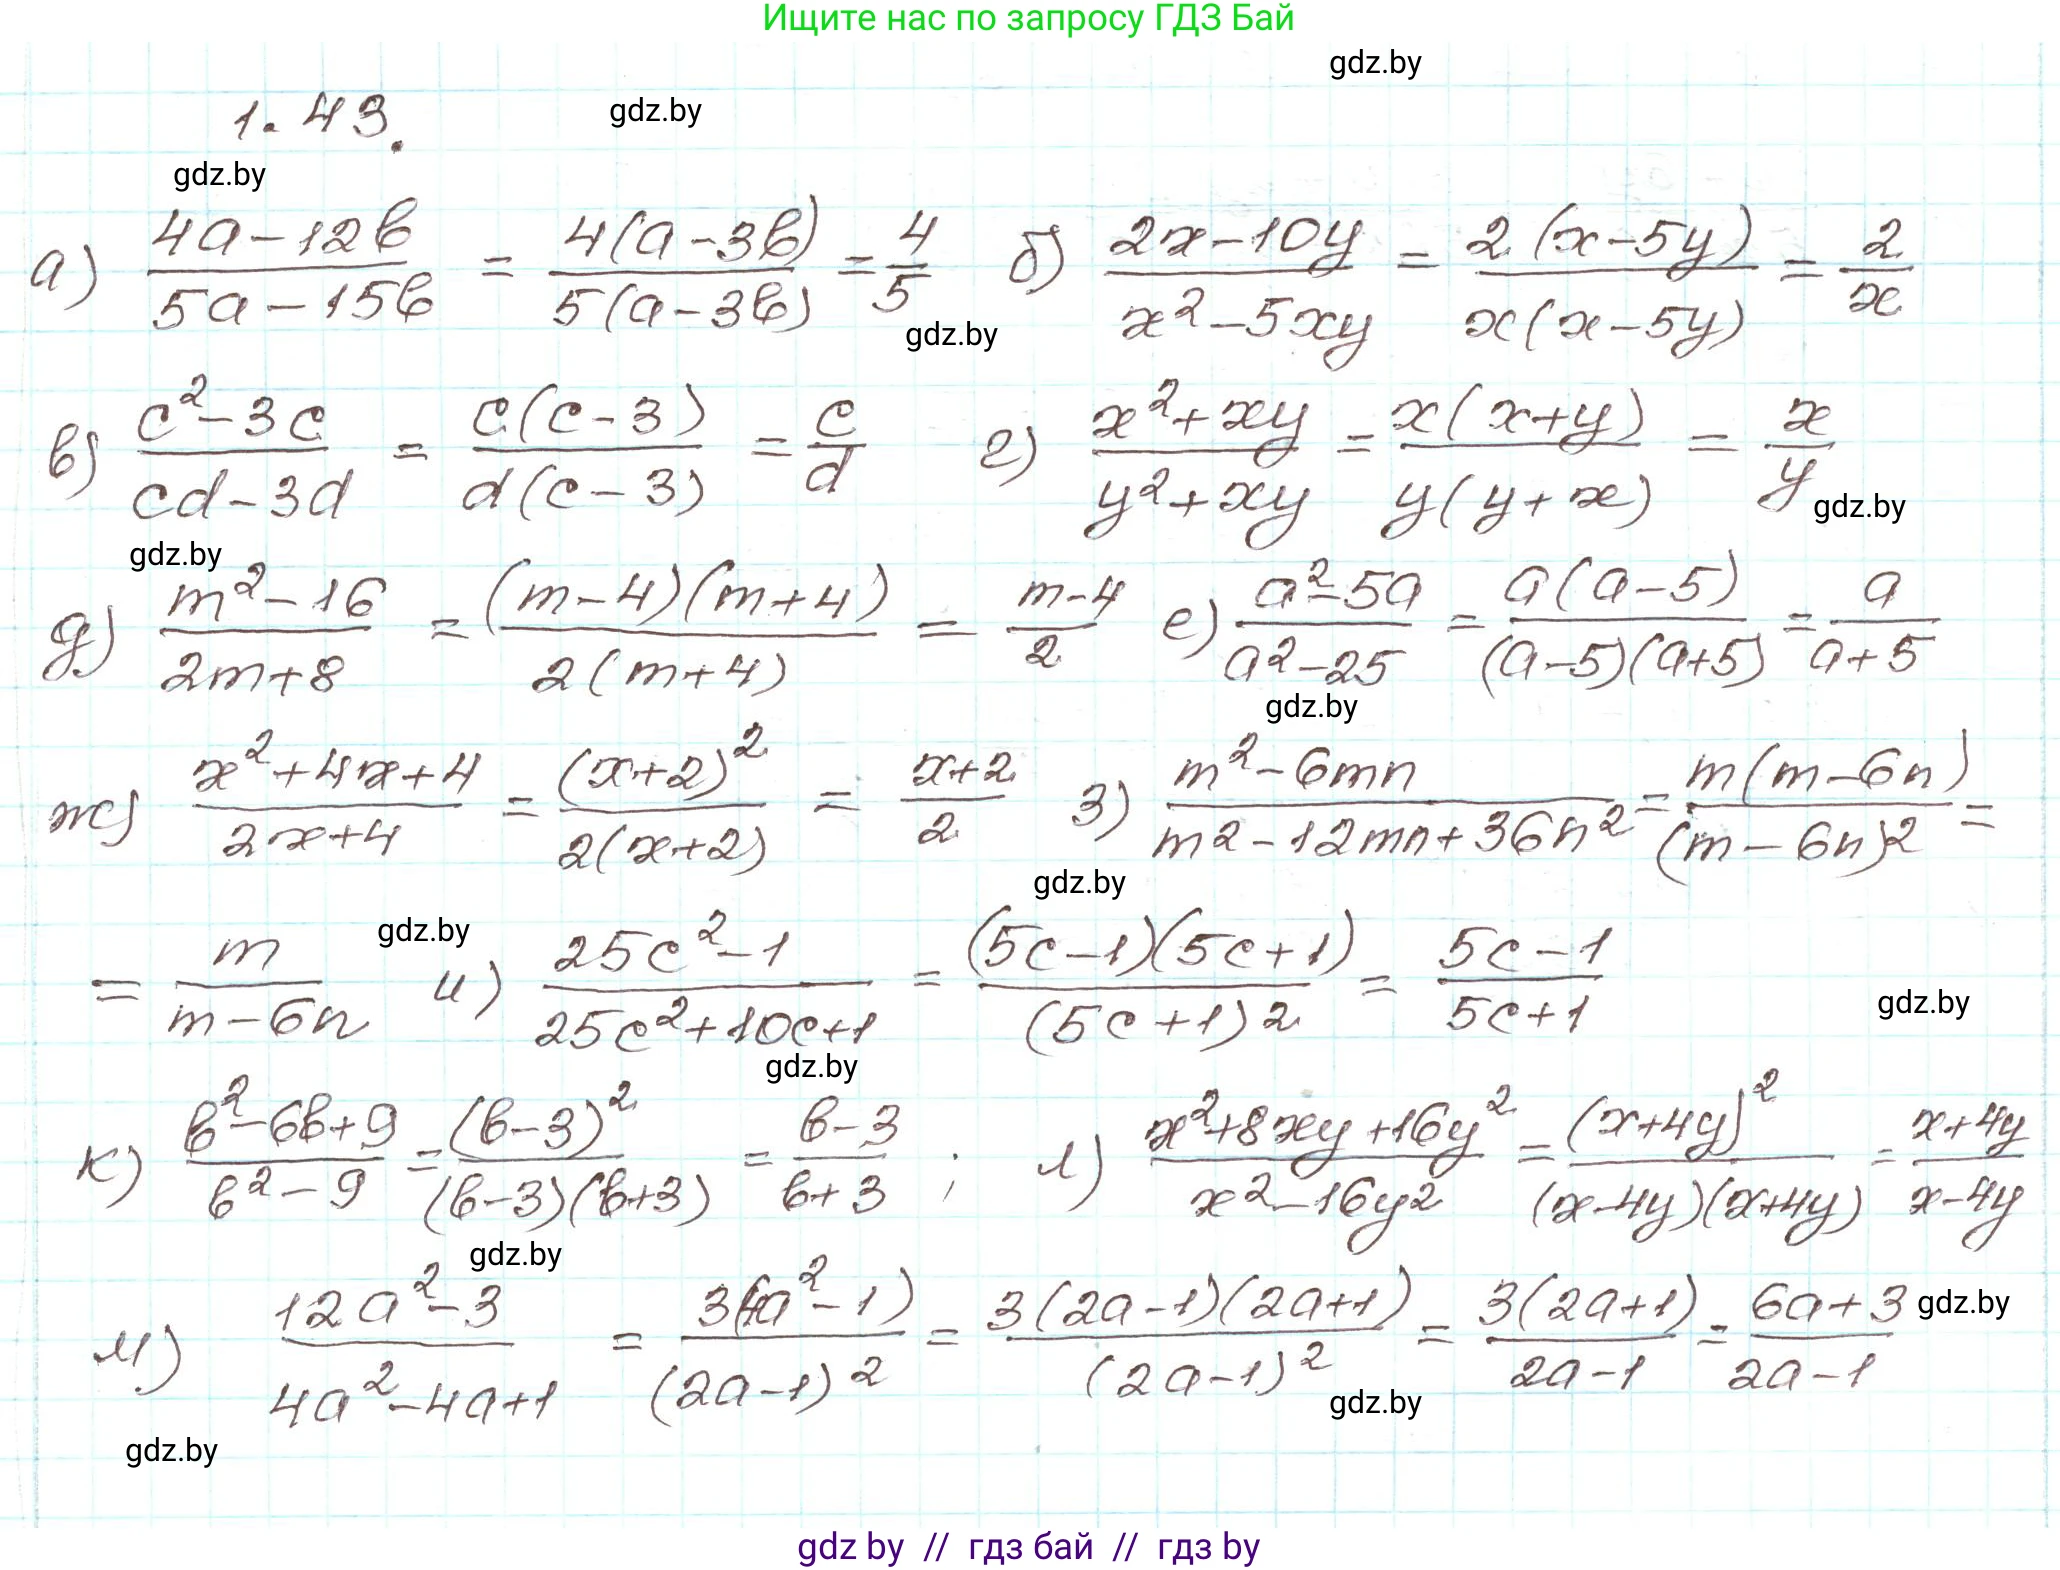 Ищите нас по запросу ГДЗ Бай
gdz.by
1.43.
gdz.by
gdz.by
а) (4a-12b)/(5a-15b) = 4(a-3b)/5(a-3b) = 4/5 б) (2x-10y)/(x²-5xy) = 2(x-5y)/x(x-5y) = 2/x
gdz.by
в) (c²-3c)/(cd-3d) = c(c-3)/d(c-3) = c/d г) (x²+xy)/(y²+xy) = x(x+y)/y(y+x) = x/y
gdz.by
gdz.by
д) (m²-16)/(2m+8) = (m-4)(m+4)/2(m+4) = (m-4)/2 е) (a²-5a)/(a²-25) = a(a-5)/(a-5)(a+5) = a/(a+5)
gdz.by
ж) (x²+4x+4)/(2x+4) = (x+2)²/2(x+2) = (x+2)/2 з) (m²-6mn)/(m²-12mn+36n²) = m(m-6n)/(m-6n)² =
gdz.by
gdz.by
= m/(m-6n) и) (25c²-1)/(25c²+10c+1) = (5c-1)(5c+1)/(5c+1)² = (5c-1)/(5c+1)
gdz.by
gdz.by
к) (b²-6b+9)/(b²-9) = (b-3)²/(b-3)(b+3) = (b-3)/(b+3) ; л) (x²+8xy+16y²)/(x²-16y²) = (x+4y)²/(x-4y)(x+4y) = (x+4y)/(x-4y)
gdz.by
м) (12a²-3)/(4a²-4a+1) = 3(4a²-1)/(2a-1)² = 3(2a-1)(2a+1)/(2a-1)² = 3(2a+1)/(2a-1) = (6a+3)/(2a-1)
gdz.by
gdz.by
gdz.by
gdz by // гдз бай // гдз by